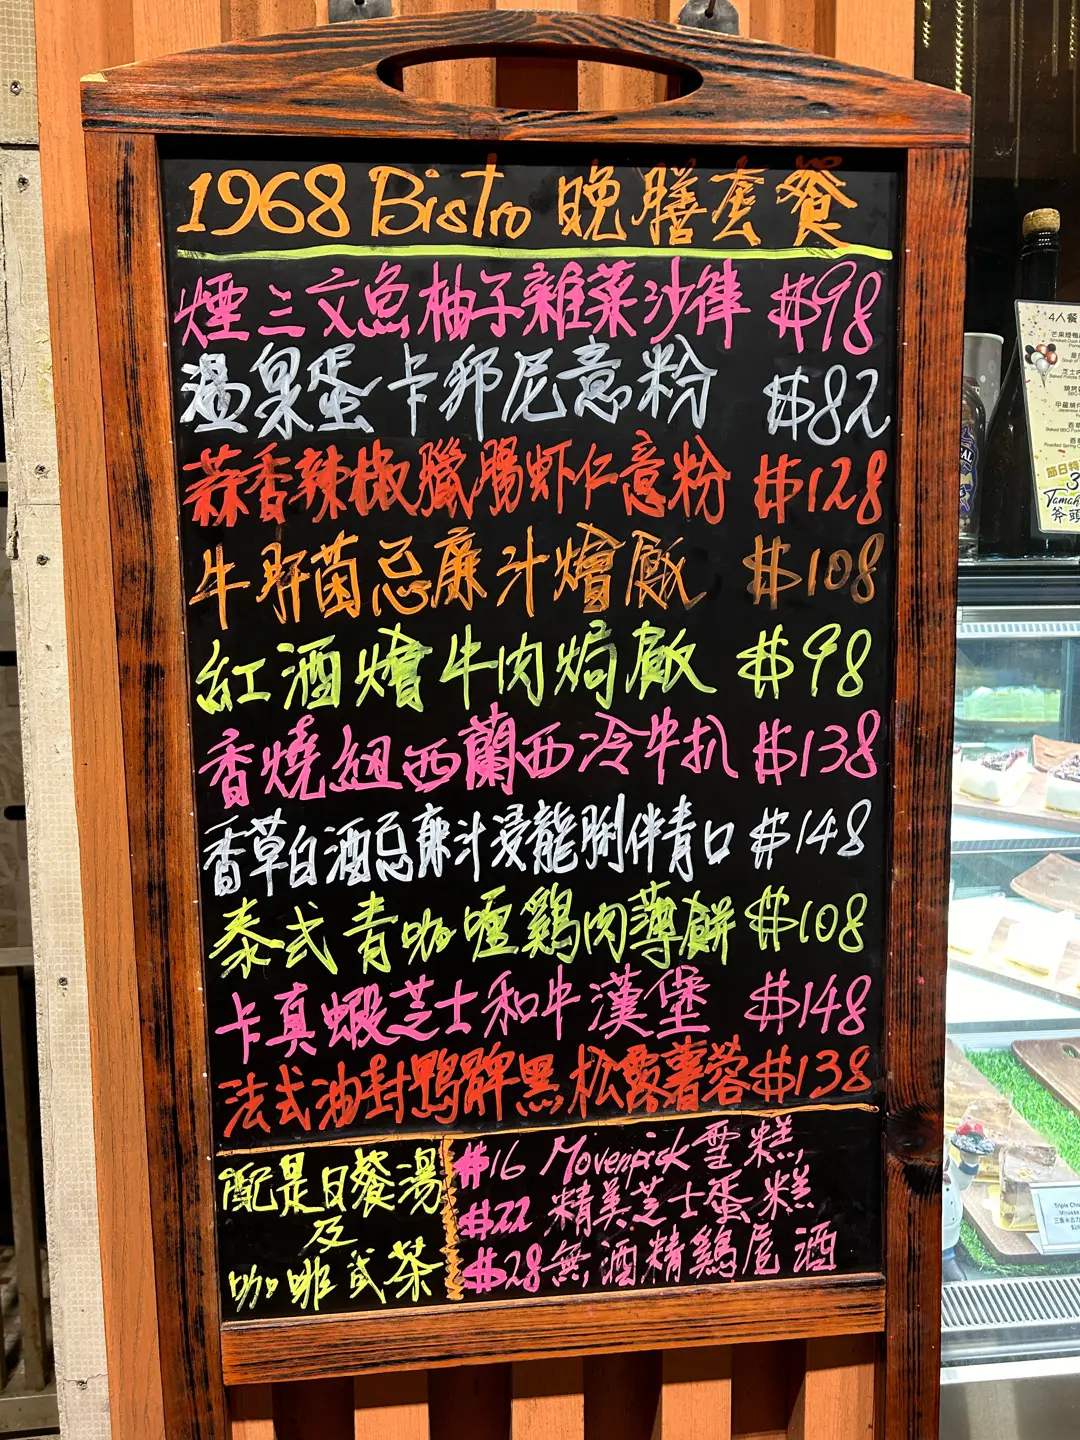 1968 Bistro 晚膳套餐
煙三文魚柚子雜菜沙律 $98
溫泉蛋卡邦尼意粉 $82
蒜香辣椒臘腸虾仁意粉 $128
牛肝菌忌廉汁燴飯 $108
紅酒燴牛肉焗飯 $98
香燒紐西蘭西冷牛扒 $138
香草白酒忌廉汁浸龍脷伴青口 $148
泰式青咖喱鷄肉薄餅 $108
卡真蝦芝士和牛漢堡 $148
法式油封鴨髀黑松露薯蓉 $138
配是日餐湯
及
咖啡或茶
$16 Mövenpick 雪糕
$22 精美芝士蛋糕
$28 無酒精鷄尾酒
4人餐
節日特
Tamah
斧頭
Triple Cho
Mousse